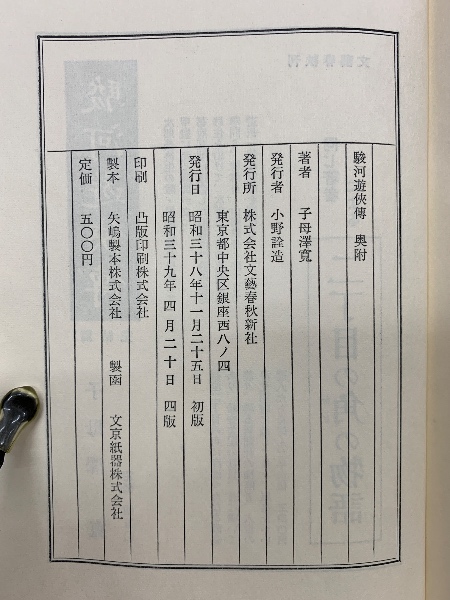 駿河遊俠傳　奥附
著者　子母澤寬
発行者　小野詮造
発行所　株式会社文藝春秋新社
東京都中央区銀座西八ノ四
発行日　昭和三十八年十一月二十五日　初版
昭和三十九年　四　月二十日　四版
印刷　凸版印刷株式会社
製本　矢嶋製本株式会社　製函　文京紙器株式会社
定価　五〇〇円